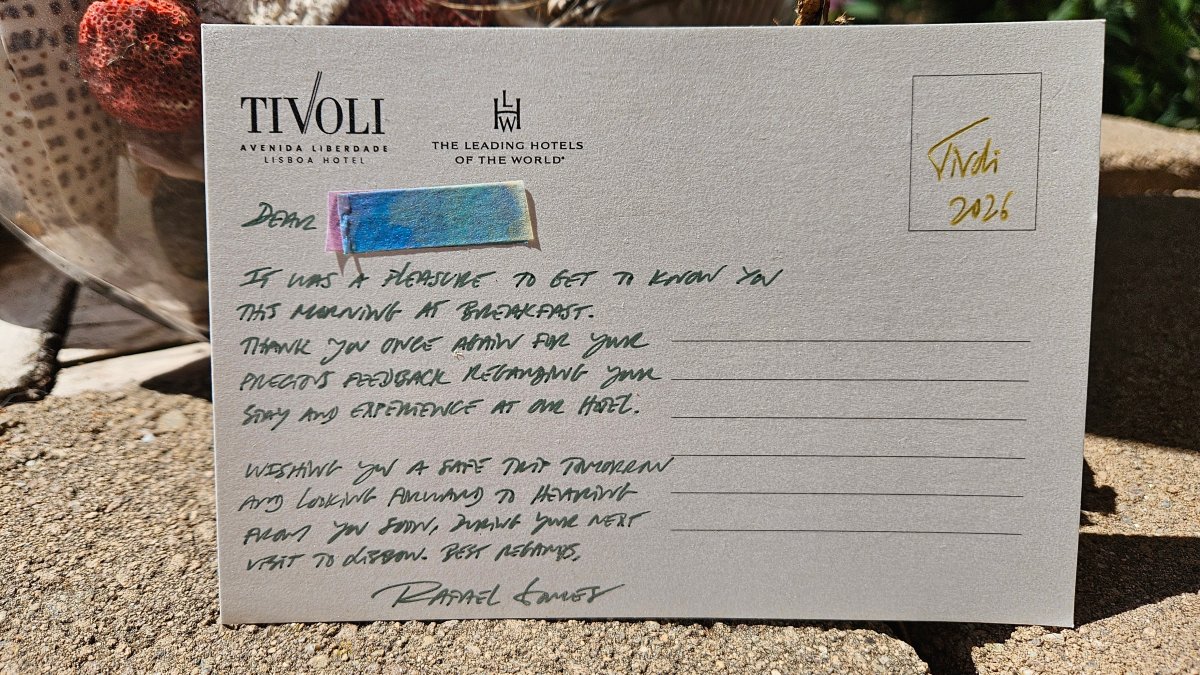 TIVOLI
AVENIDA LIBERDADE
LISBOA HOTEL
LHW
THE LEADING HOTELS
OF THE WORLD®
Tivoli
2026
DEAR
IT WAS A PLEASURE TO GET TO KNOW YOU
THIS MORNING AT BREAKFAST.
THANK YOU ONCE AGAIN FOR YOUR
PRECIOUS FEEDBACK REGARDING YOUR
STAY AND EXPERIENCE AT OUR HOTEL.
WISHING YOU A SAFE TRIP TOMORROW
AND LOOKING FORWARD TO HEARING
FROM YOU SOON, DURING YOUR NEXT
VISIT TO LISBON. BEST REGARDS,
RAFAEL GOMES